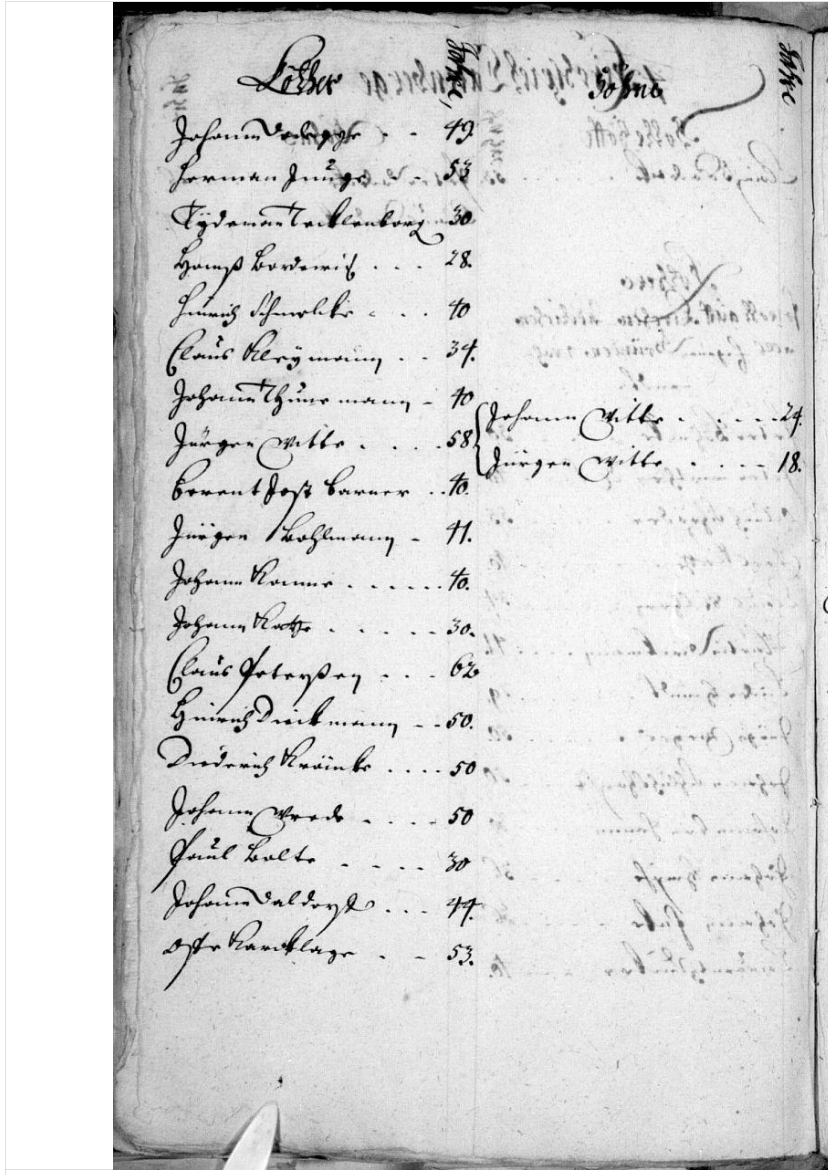 Köther Jahre Söhne Jahre
Johann 49
Herman Junge 53
Tydeman Tecklenborg 30
Hanß Bordewich 28.
Hinrich Schmelcke 40
Claus Kleymann 34.
Johann Thunemann 40
Jürgen Witte 58 Johann Witte 24.
Jürgen Witte 18.
Berent Jost Barner 40.
Jürgen Bohlmann 41.
Johann 40.
Johann 30.
Claus Peterßen 62
Hinrich Dieckmann 50.
Diederich Kröncke 50
Johann Wrede 50
Paul Bolte 30
Johann Daldorp 44.
Karcklage 53.